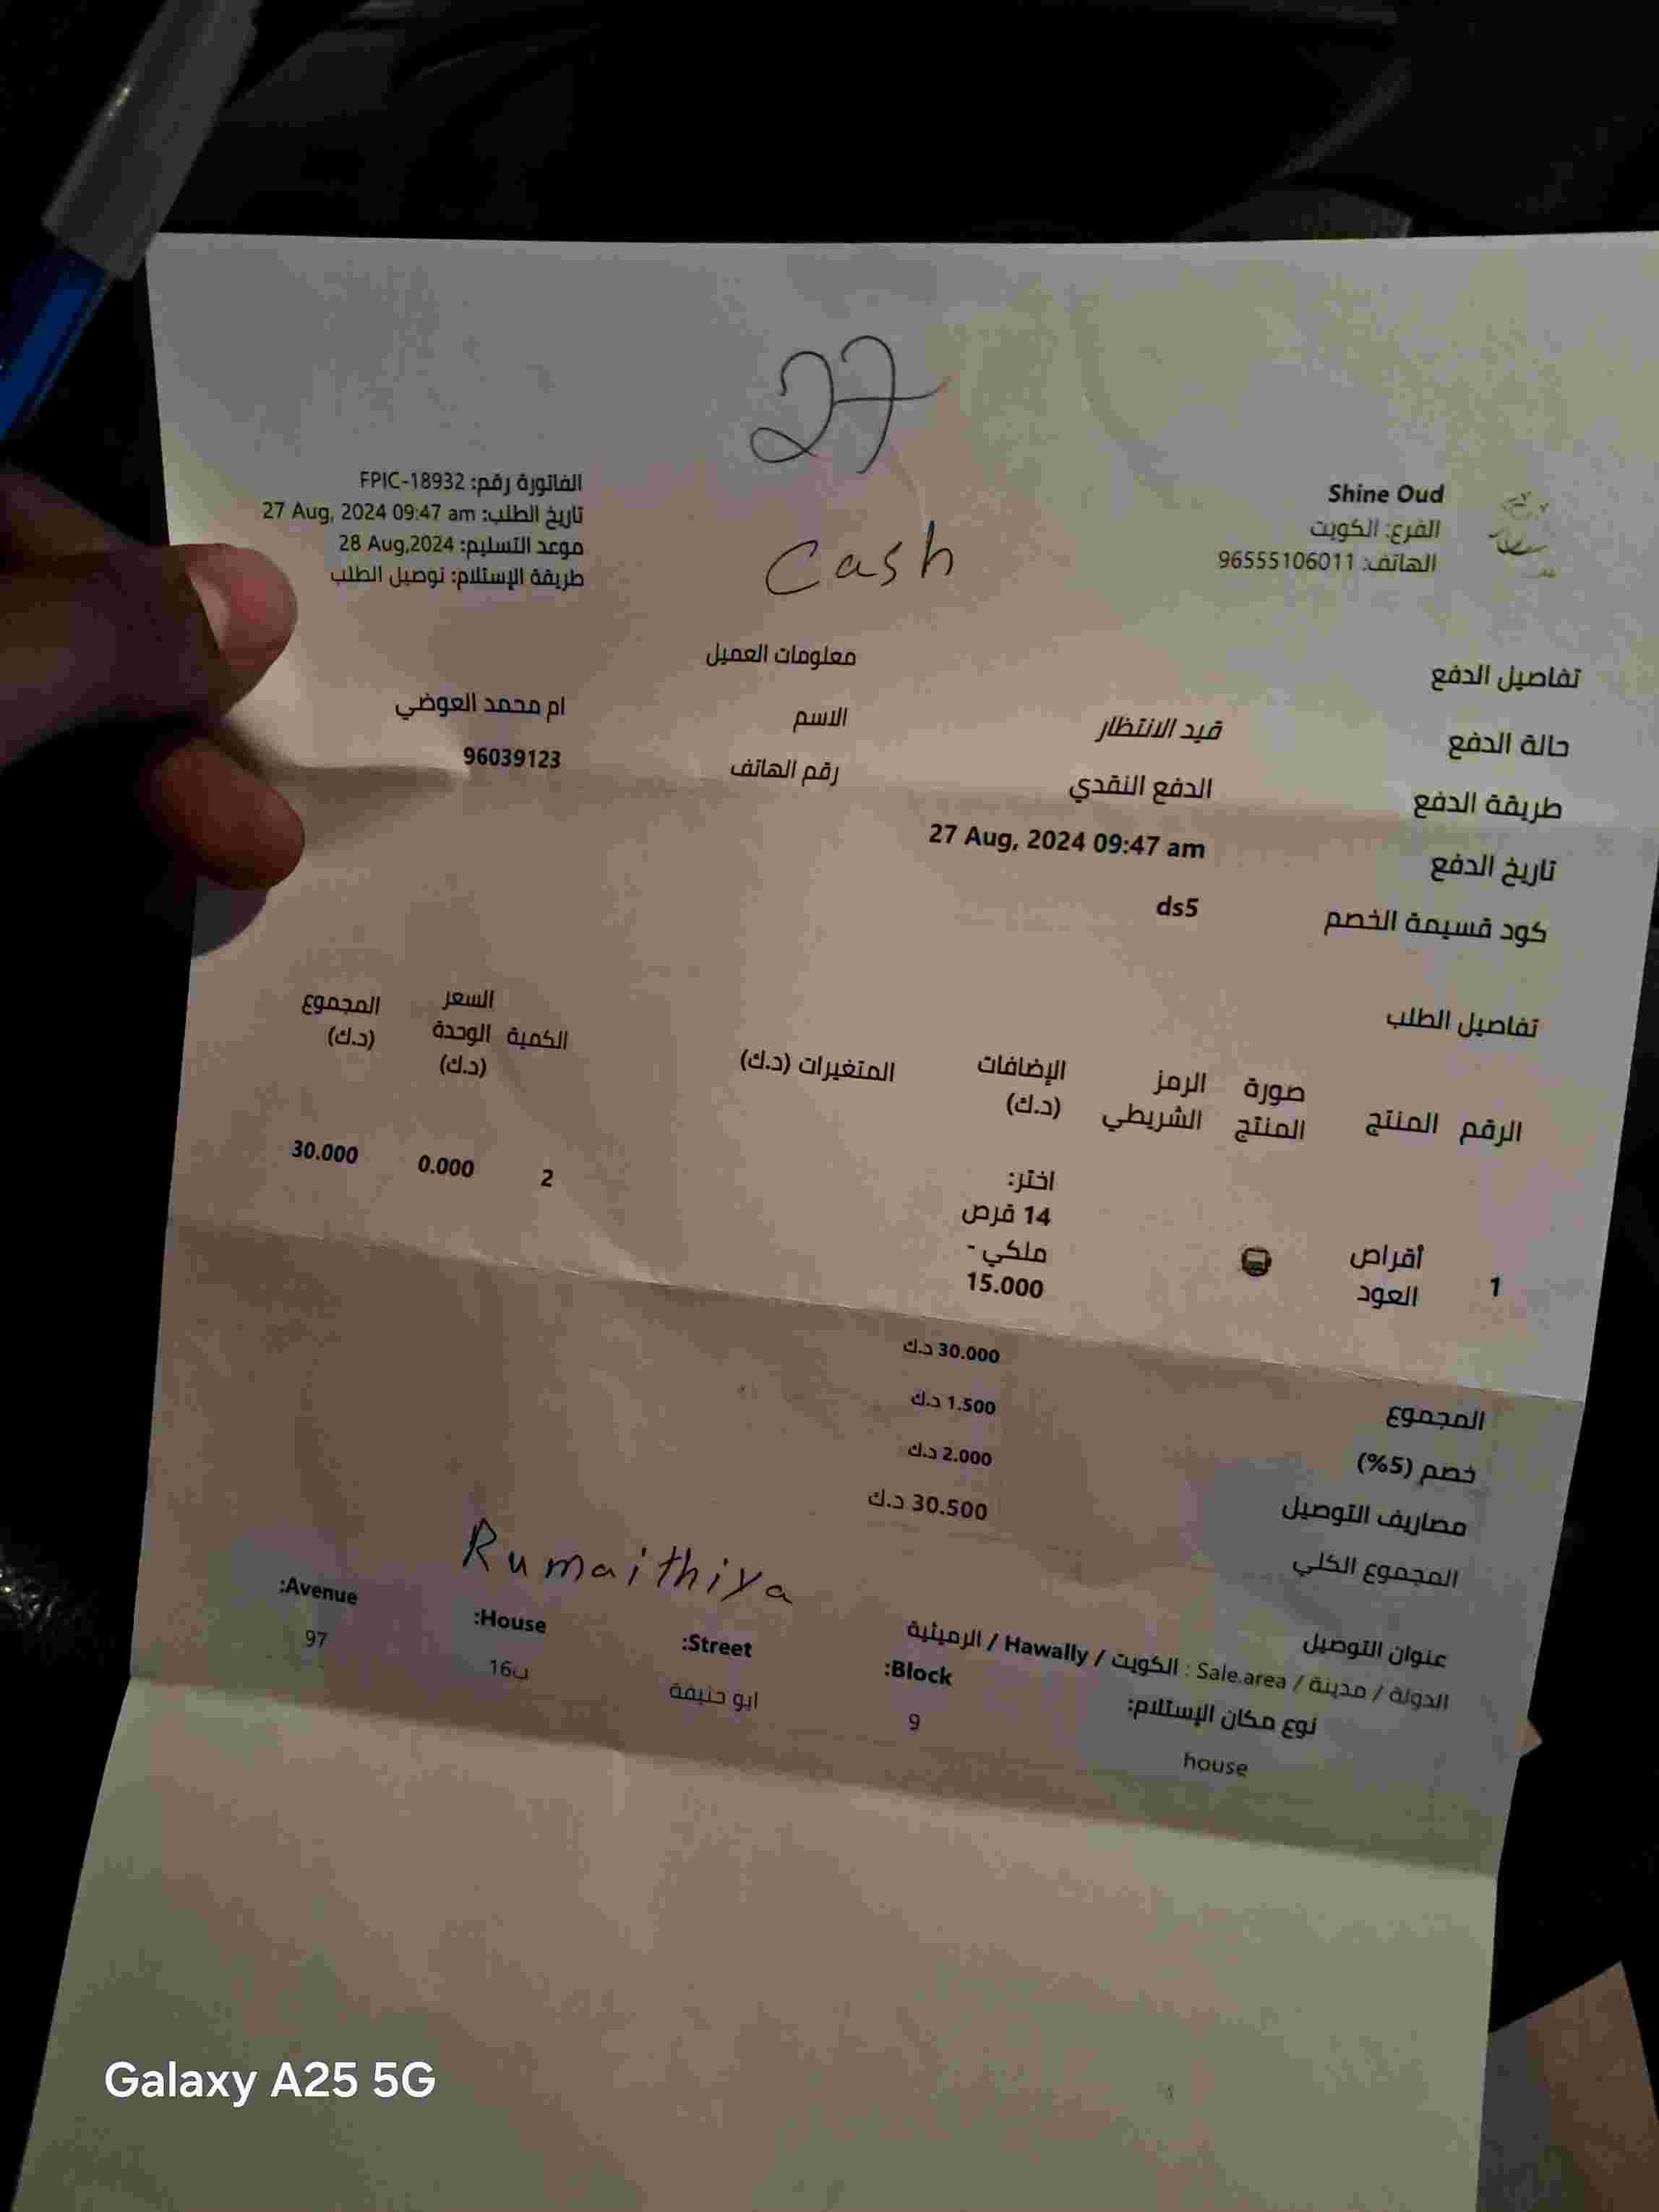 27
Cash
Shine Oud
الفرع: الكويت
الهاتف: 96555106011
الفاتورة رقم: FPIC-18932
تاريخ الطلب: 27 Aug, 2024 09:47 am
موعد التسليم: 28 Aug,2024
طريقة الإستلام: توصيل الطلب
تفاصيل الدفع
حالة الدفع قيد الانتظار
طريقة الدفع الدفع النقدي
تاريخ الدفع 27 Aug, 2024 09:47 am
كود قسيمة الخصم ds5
معلومات العميل
الاسم ام محمد العوضي
رقم الهاتف 96039123
تفاصيل الطلب
الرقم المنتج صورة المنتج الرمز الشريطي الإضافات (د.ك) المتغيرات (د.ك) الكمية السعر الوحدة (د.ك) المجموع (د.ك)
1 أقراص العود اختر: 14 قرص ملكي - 15.000 2 0.000 30.000
المجموع 30.000 د.ك
خصم (5%) 1.500 د.ك
مصاريف التوصيل 2.000 د.ك
المجموع الكلي 30.500 د.ك
Rumaithiya
عنوان التوصيل
الدولة / مدينة / Sale.area : الكويت / Hawally / الرميثية
نوع مكان الإستلام: Block: Street: House: Avenue:
house 9 ابو حنيفة ب16 97
Galaxy A25 5G